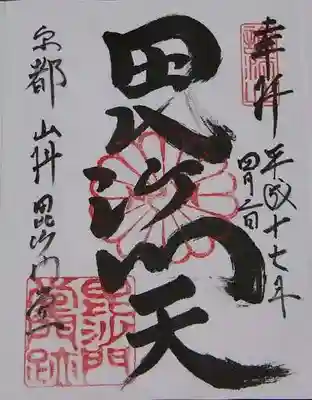 奉拝 平成十七年
四月二日
毘沙門天
京都 山科 毘沙門堂
毘沙門
堂門跡